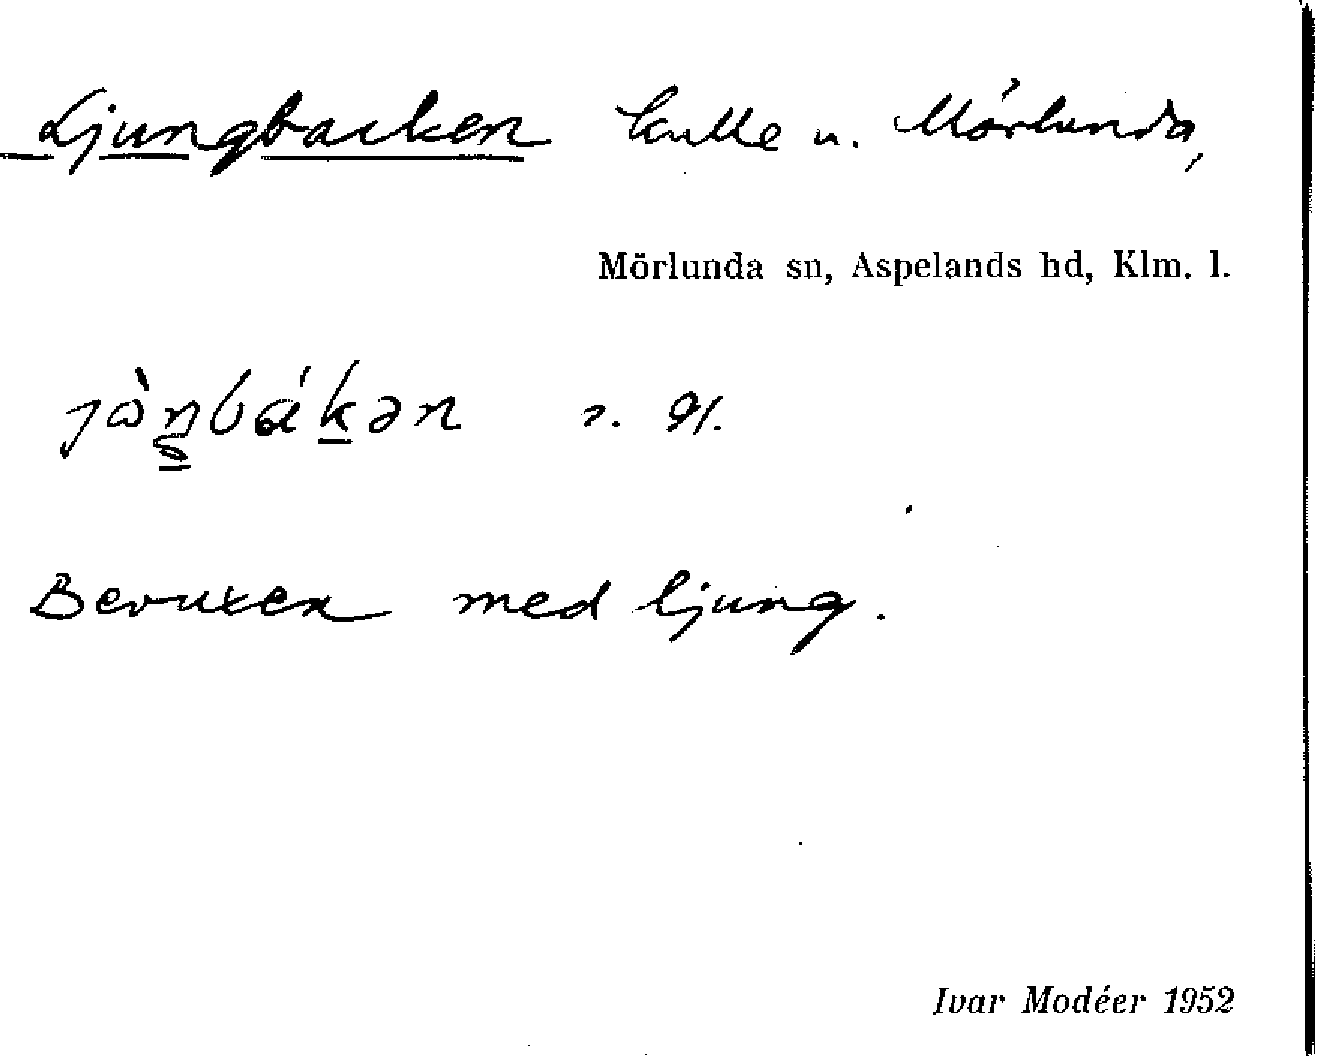 Ljungbacken kulle u. Mörlunda,
Mörlunda sn, Aspelands hd, Klm. l.
Bevuxen med ljung.
Ivar Modéer 1952